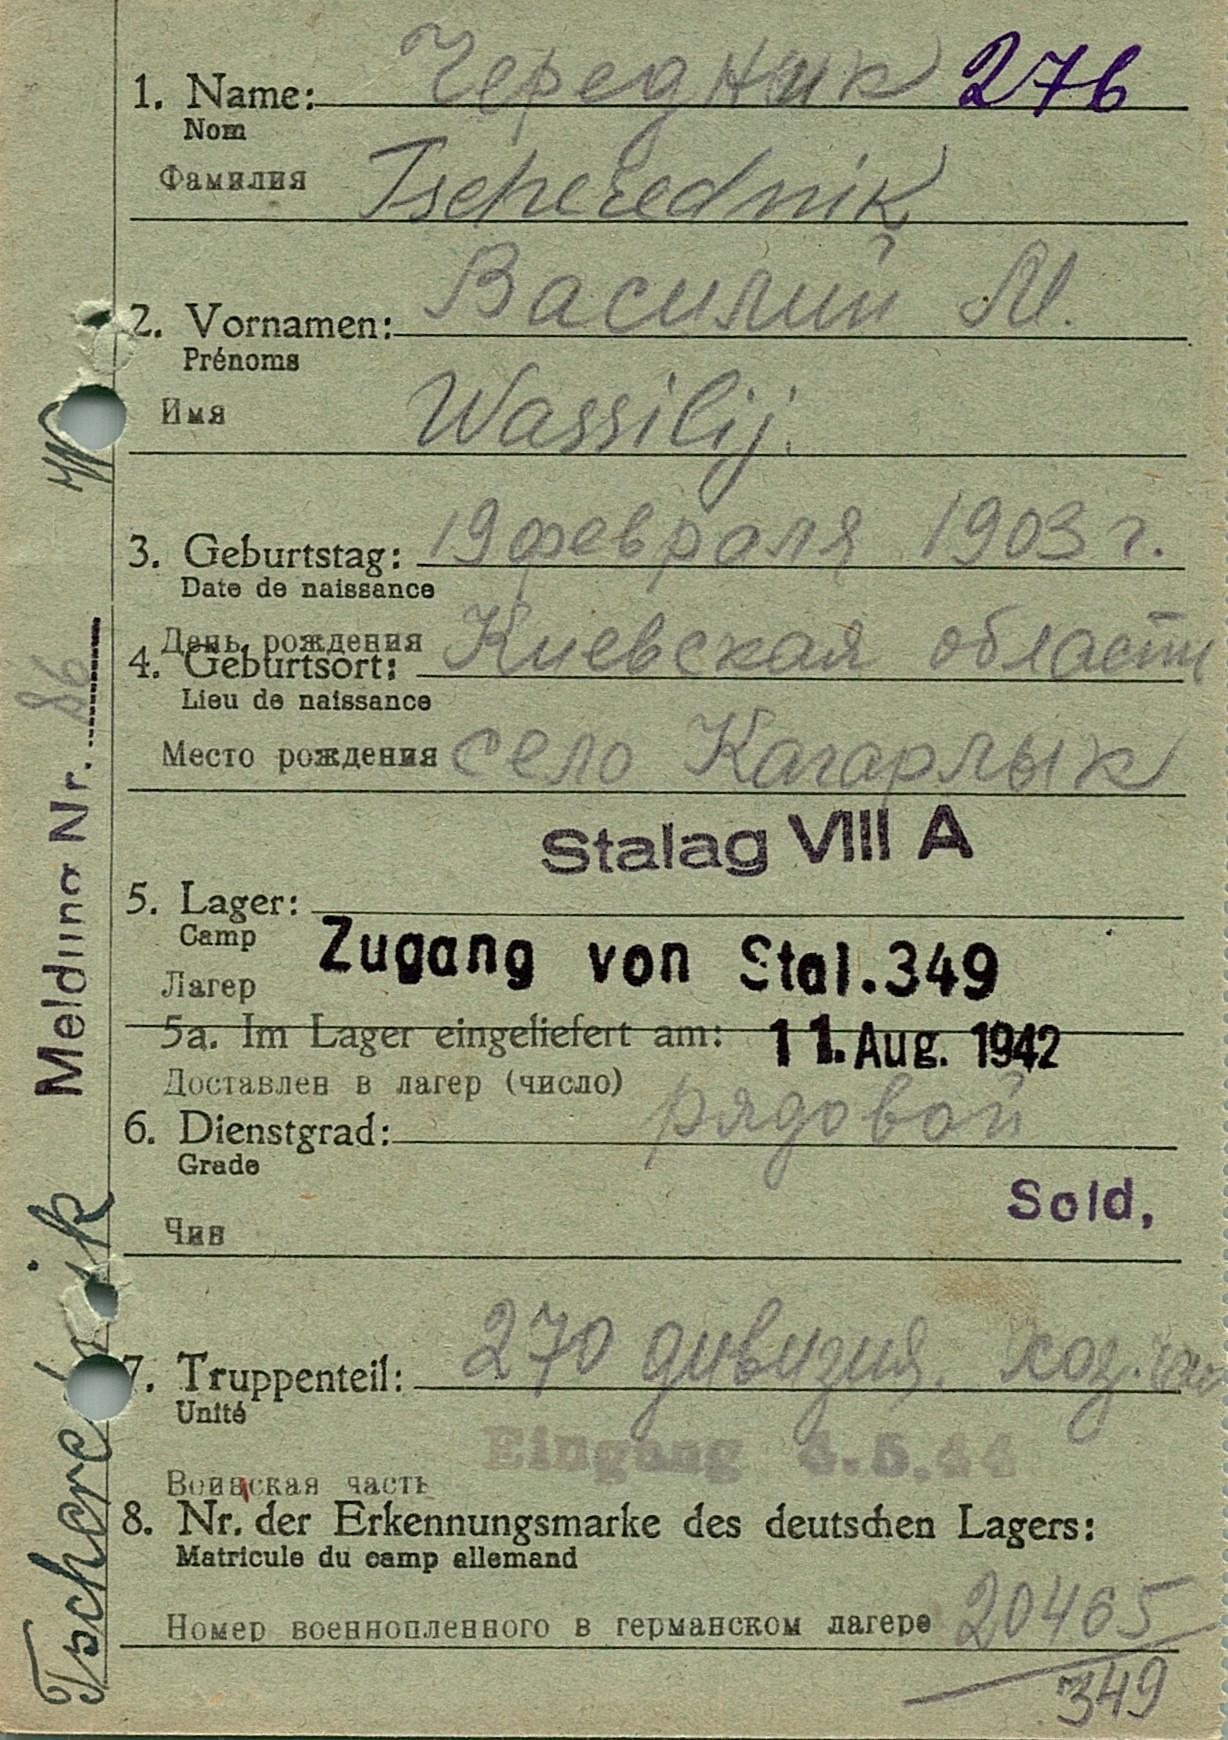 1. Name: Чередник 276
Nom
Фамилия Tscherednik
2. Vornamen: Василий М.
Prénoms
Имя Wassilij.
3. Geburtstag: 19 февраля 1903 г.
Date de naissance
День рождения
4. Geburtsort: Киевская области
Lieu de naissance
Место рождения село Кагарлык
Stalag VIII A
5. Lager:
Camp
Zugang von Stal. 349
Лагер
5a. Im Lager eingeliefert am: 11. Aug. 1942
Доставлен в лагер (число)
6. Dienstgrad: рядовой
Grade
Sold,
Чин
7. Truppenteil: 270 дивизия. хоз.
Unité
Eingang 4.5.44
Воинская часть
8. Nr. der Erkennungsmarke des deutschen Lagers:
Matricule du camp allemand
Номер военнопленного в германском лагере 20465
349
Meldung Nr. 86
Tscherednik